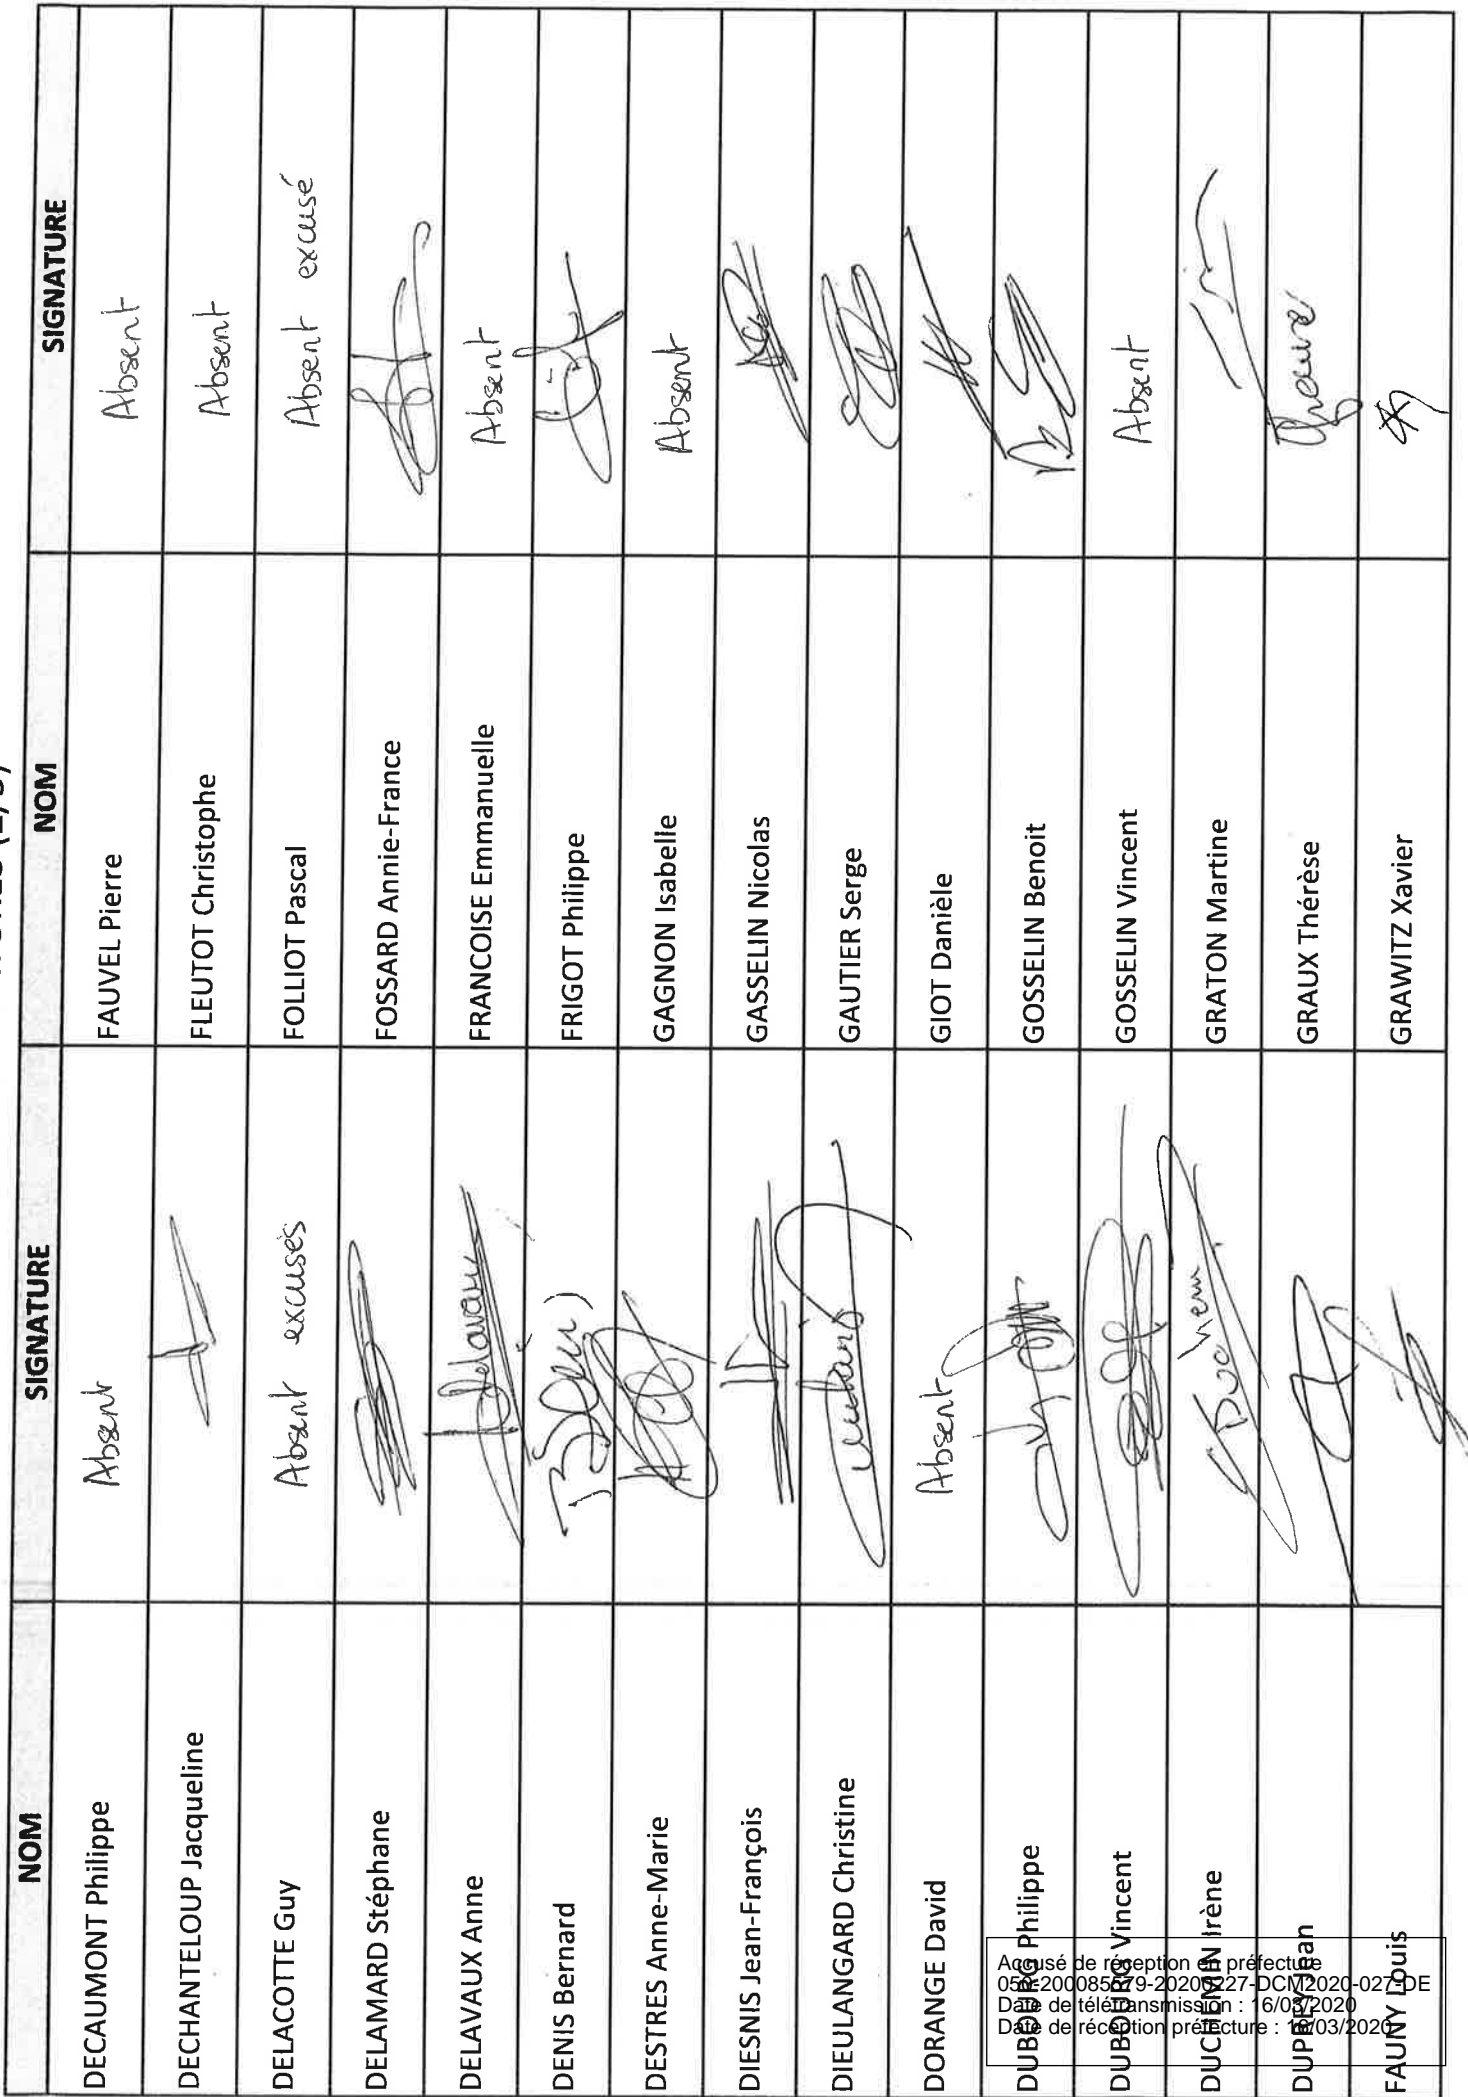 NOM SIGNATURE NOM SIGNATURE
DECAUMONT Philippe Absent FAUVEL Pierre Absent
DECHANTELOUP Jacqueline FLEUTOT Christophe Absent
DELACOTTE Guy Absent excusés FOLLIOT Pascal Absent excusé
DELAMARD Stéphane FOSSARD Annie-France
DELAVAUX Anne Delavaux FRANCOISE Emmanuelle Absent
DENIS Bernard FRIGOT Philippe
DESTRES Anne-Marie GAGNON Isabelle Absent
DIESNIS Jean-François GASSELIN Nicolas
DIEULANGARD Christine GAUTIER Serge
DORANGE David Absent GIOT Danièle
DUBOURG Philippe GOSSELIN Benoit
DUBOURG Vincent GOSSELIN Vincent Absent
DUCHEMIN Irène GRATON Martine
DUPREY Jean GRAUX Thérèse
FAUNY Louis GRAWITZ Xavier
Accusé de réception en préfecture
Date de télétransmission : 16/03/2020
Date de réception préfecture :